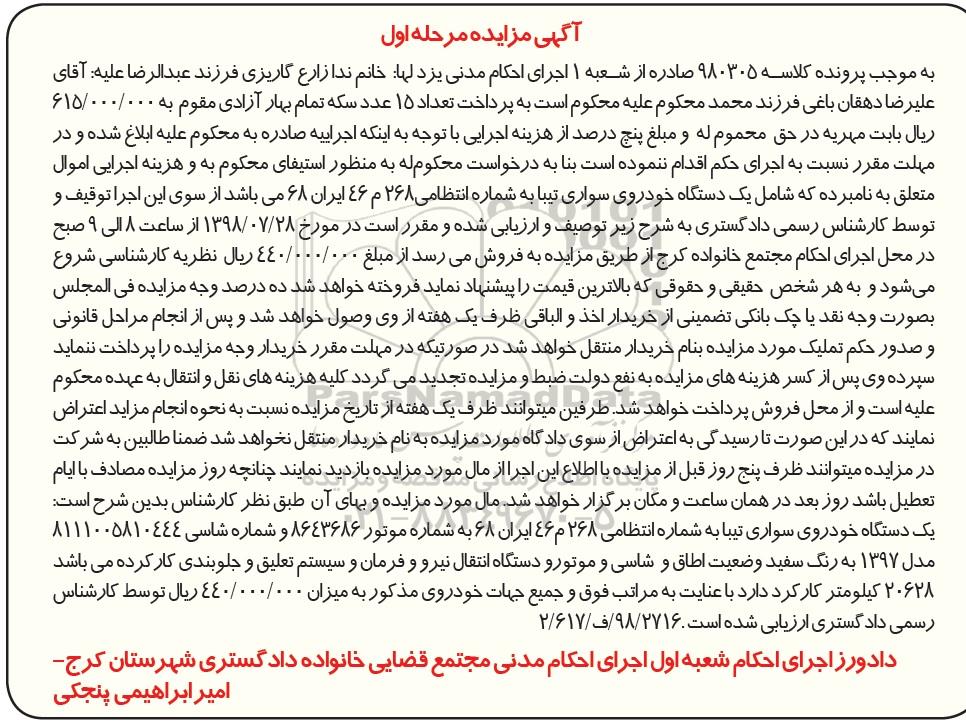 آگهی مزایده مرحله اول
به موجب پرونده کلاسه ۹۸۰۳۰۵ صادره از شعبه ۱ اجرای احکام مدنی یزد لها: خانم ندا زارع گاریزی فرزند عبدالرضا علیه: آقای
علیرضا دهقان باغی فرزند محمد محکوم علیه محکوم است به پرداخت تعداد ۱۵ عدد سکه تمام بهار آزادی مقوم به ۶۱۵/۰۰۰/۰۰۰
ریال بابت مهریه در حق محموم له و مبلغ پنج درصد از هزینه اجرایی با توجه به اینکه اجراییه صادره به محکوم علیه ابلاغ شده و در
مهلت مقرر نسبت به اجرای حکم اقدام ننموده است بنا به درخواست محکوم‌له به منظور استیفای محکوم به و هزینه اجرایی اموال
متعلق به نامبرده که شامل یک دستگاه خودروی سواری تیبا به شماره انتظامی۲۶۸ م ۴۶ ایران ۶۸ می باشد از سوی این اجرا توقیف و
توسط کارشناس رسمی دادگستری به شرح زیر توصیف و ارزیابی شده و مقرر است در مورخ ۱۳۹۸/۰۷/۲۸ از ساعت ۸ الی ۹ صبح
در محل اجرای احکام مجتمع خانواده کرج از طریق مزایده به فروش می رسد از مبلغ ۴۴۰/۰۰۰/۰۰۰ ریال نظریه کارشناسی شروع
می‌شود و به هر شخص حقیقی و حقوقی که بالاترین قیمت را پیشنهاد نماید فروخته خواهد شد ده درصد وجه مزایده فی المجلس
بصورت وجه نقد یا چک بانکی تضمینی از خریدار اخذ و الباقی ظرف یک هفته از وی وصول خواهد شد و پس از انجام مراحل قانونی
و صدور حکم تملیک مورد مزایده بنام خریدار منتقل خواهد شد در صورتیکه در مهلت مقرر خریدار وجه مزایده را پرداخت ننماید
سپرده وی پس از کسر هزینه های مزایده به نفع دولت ضبط و مزایده تجدید می گردد کلیه هزینه های نقل و انتقال به عهده محکوم
علیه است و از محل فروش پرداخت خواهد شد. طرفین میتوانند ظرف یک هفته از تاریخ مزایده نسبت به نحوه انجام مزاید اعتراض
نمایند که در این صورت تا رسیدگی به اعتراض از سوی دادگاه مورد مزایده به نام خریدار منتقل نخواهد شد ضمنا طالبین به شرکت
در مزایده میتوانند ظرف پنج روز قبل از مزایده با اطلاع این اجرا از مال مورد مزایده بازدید نمایند چنانچه روز مزایده مصادف با ایام
تعطیل باشد روز بعد در همان ساعت و مکان برگزار خواهد شد. مال مورد مزایده و بهای آن طبق نظر کارشناس بدین شرح است:
یک دستگاه خودروی سواری تیبا به شماره انتظامی ۲۶۸ م۴۶ ایران ۶۸ به شماره موتور ۸۶۴۳۶۸۶ و شماره شاسی ۸۱۱۱۰۰۵۸۱۰۴۴۴
مدل ۱۳۹۷ به رنگ سفید وضعیت اطاق و شاسی و موتورو دستگاه انتقال نیرو و فرمان و سیستم تعلیق و جلوبندی کارکرده می باشد
۲۰۶۲۸ کیلومتر کارکرد دارد با عنایت به مراتب فوق و جمیع جهات خودروی مذکور به میزان ۴۴۰/۰۰۰/۰۰۰ ریال توسط کارشناس
رسمی دادگستری ارزیابی شده است .۹۸/۲۷۱۶/ف/۲/۶۱۷
دادورز اجرای احکام شعبه اول اجرای احکام مدنی مجتمع قضایی خانواده دادگستری شهرستان کرج-
امیر ابراهیمی پنجکی
ParsNamadData
پایگاه اطلاع رسانی مناقصه و مزایده
۰۲۱-۸۸۳۴۹۶۷۰-۵